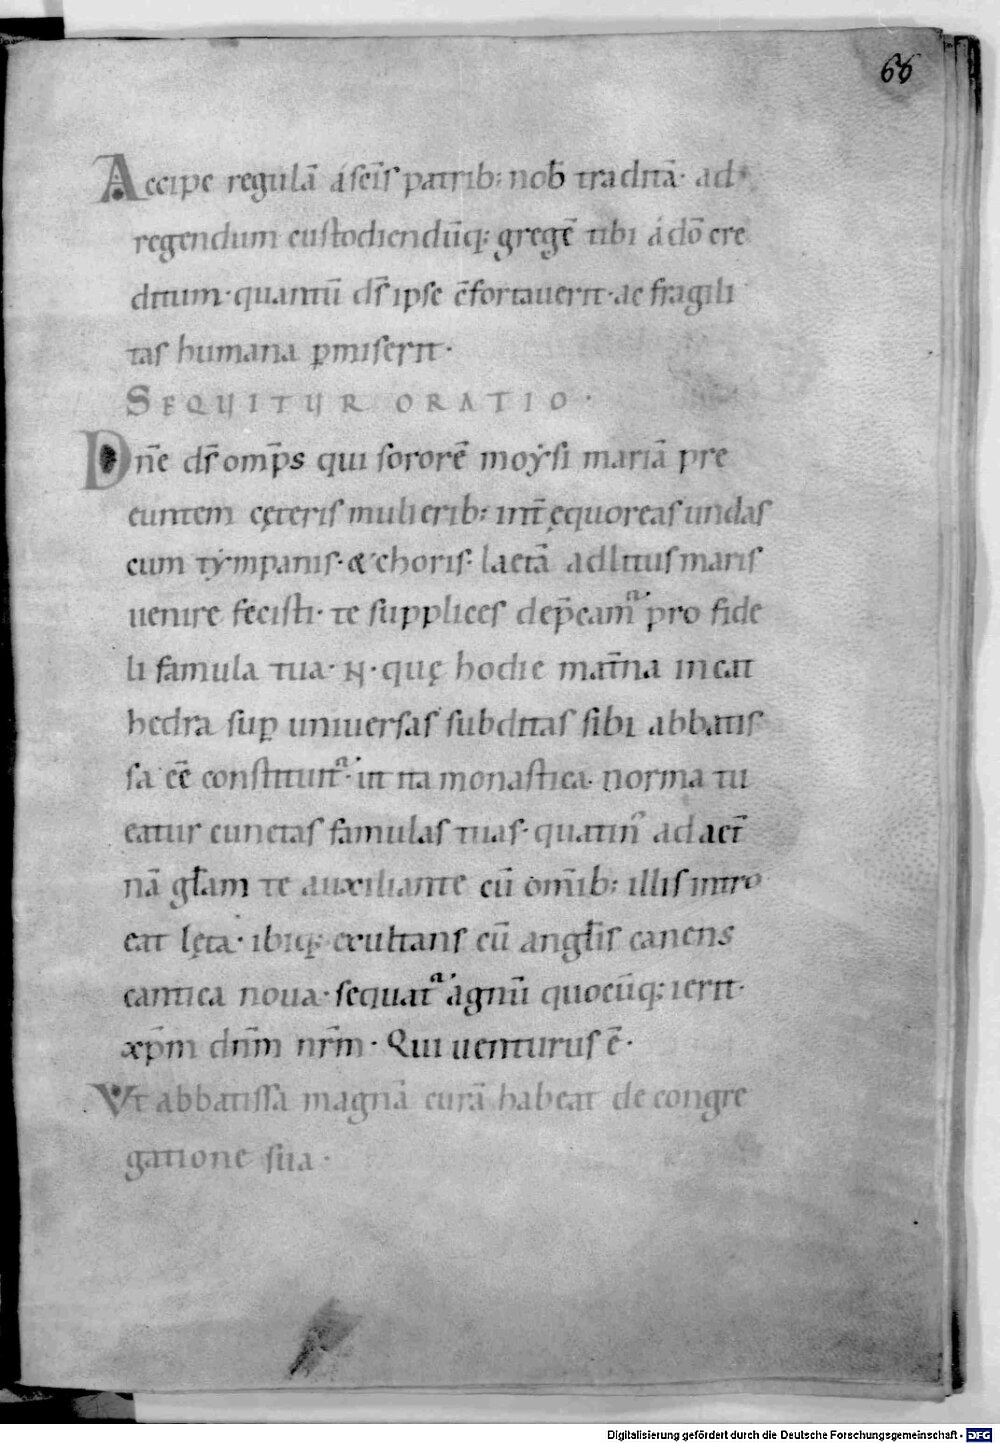 66
Accipe regulā á scīs patrib; nob̄ traditā· ad
regendum custodiendūq; gregē tibi á dō cre
ditum· quantū dſ̄ ipſe cōfortauerit· ac fragili
taſ humana p̱miſerit·
SEQUITUR ORATIO·
Dn̄e dſ̄ omp̄s qui ſororē moẏſi mariā pre
euntem cęteriſ mulierib; int̄ ęquoreaſ undaſ
cum tẏmpaniſ· & choriſ· laetā ad lituſ mariſ
uenire feciſti· te ſuppliceſ dep̄camꝰ pro fide
li famula tua· N· quę hodie mat̄na in cat
hedra ſup̱ uniuerſaſ ſubditaſ ſibi abbatiſ
ſa eē conſtituit᷑· ut ita monaſtica norma tu
eatur cunctaſ famulaſ tuaſ· quatin᷒ ad aet̄
nā gl̄am te auxiliante cū om̄ib; illiſ intro
eat lęta· ibiq; exultanſ cū angl̄iſ canens
cantica noua· ſequat᷑ agnū quocūq; ierit·
xp̄m dn̄m nr̄m· Qui uenturuſ ē·
Vt abbatiſſa magnā curā habeat de congre
gatione ſua·
Digitalisierung gefördert durch die Deutsche Forschungsgemeinschaft - DFG